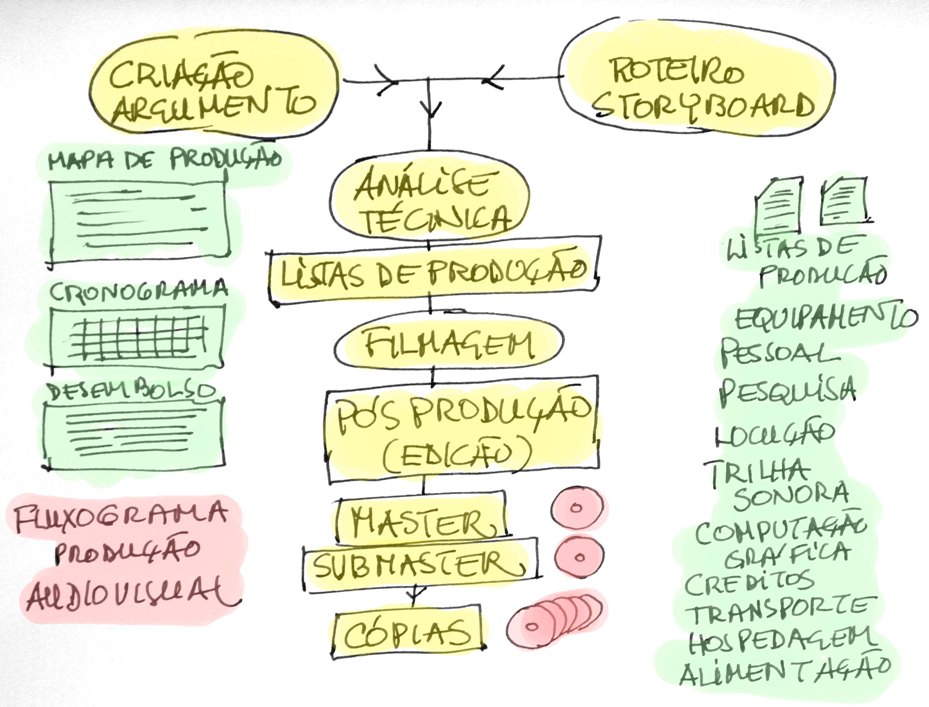 CRIAÇÃO
ARGUMENTO
ROTEIRO
STORYBOARD
MAPA DE PRODUÇÃO
CRONOGRAMA
DESEMBOLSO
FLUXOGRAMA
PRODUÇÃO
AUDIOVISUAL
ANÁLISE
TÉCNICA
LISTAS DE PRODUÇÃO
FILMAGEM
PÓS PRODUÇÃO
(EDIÇÃO)
MASTER
SUBMASTER
CÓPIAS
LISTAS DE
PRODUÇÃO
EQUIPAMENTO
PESSOAL
PESQUISA
LOCUÇÃO
TRILHA
SONORA
COMPUTAÇÃO
GRÁFICA
CREDITOS
TRANSPORTE
HOSPEDAGEM
ALIMENTAÇÃO